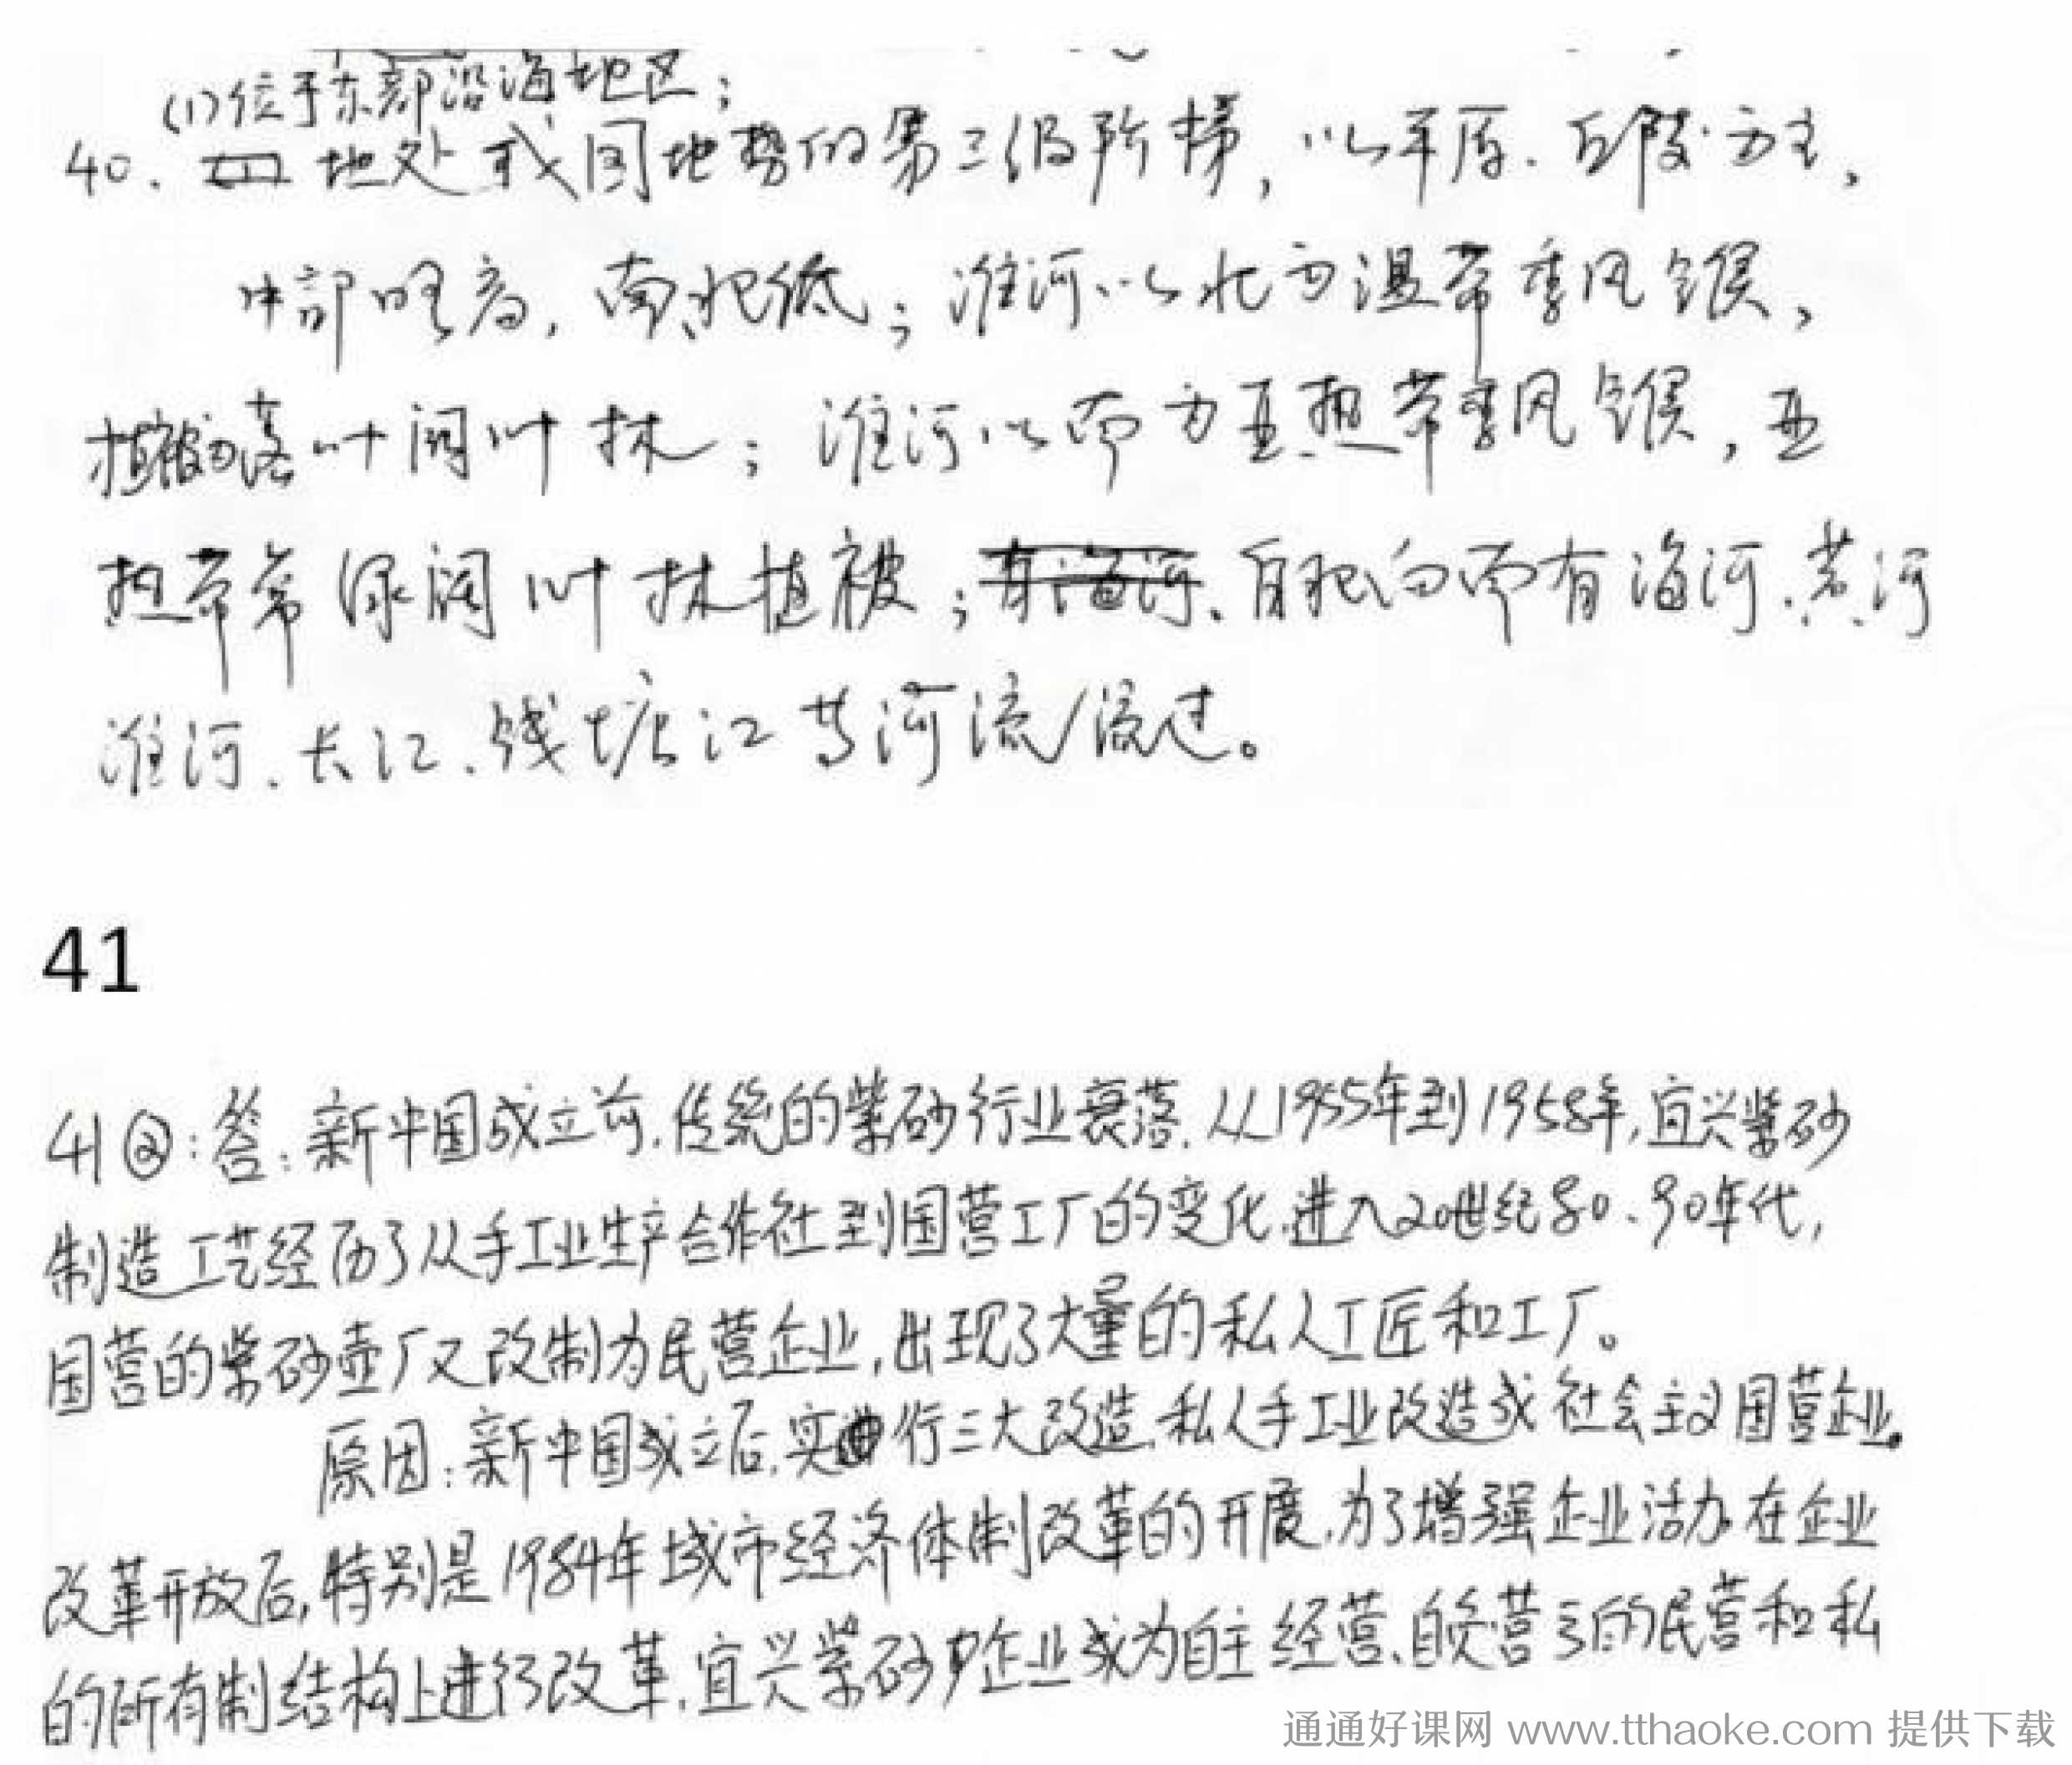 (1)位于东部沿海地区；
40. 地处我国地势的第三级阶梯，以平原、丘陵为主，
中部略高，南北低；淮河以北为温带季风气候，
植被为落叶阔叶林；淮河以南为亚热带季风气候，亚
热带常绿阔叶林植被；有海河、自北向南有海河、黄河
淮河、长江、钱塘江等河流流过。
41
41②：答：新中国成立前，传统的紫砂行业衰落，从1955年到1958年，宜兴紫砂
制造工艺经历了从手工业生产合作社到国营工厂的变化，进入20世纪80、90年代，
国营的紫砂壶厂又改制为民营企业，出现了大量的私人工匠和工厂。
原因：新中国成立后，实行三大改造，私人手工业改造成社会主义国营企业。
改革开放后，特别是1984年城市经济体制改革的开展，为了增强企业活力，在企业
的所有制结构上进行改革，宜兴紫砂企业成为自主经营、自负营亏的民营和私
通通好课网 www.tthaoke.com 提供下载